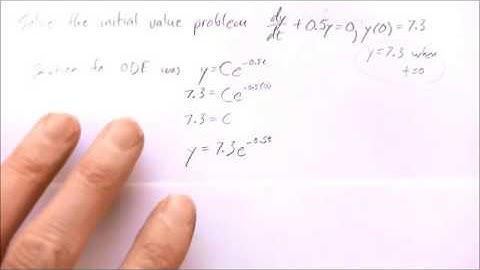 Solve the initial value problem dy/dt + 0.5y = 0, y(0) = 7.3
y = 7.3 when
t = 0
Solution for ODE was y = Ce^{-0.5t}
7.3 = Ce^{-0.5(0)}
7.3 = C
y = 7.3e^{-0.5t}